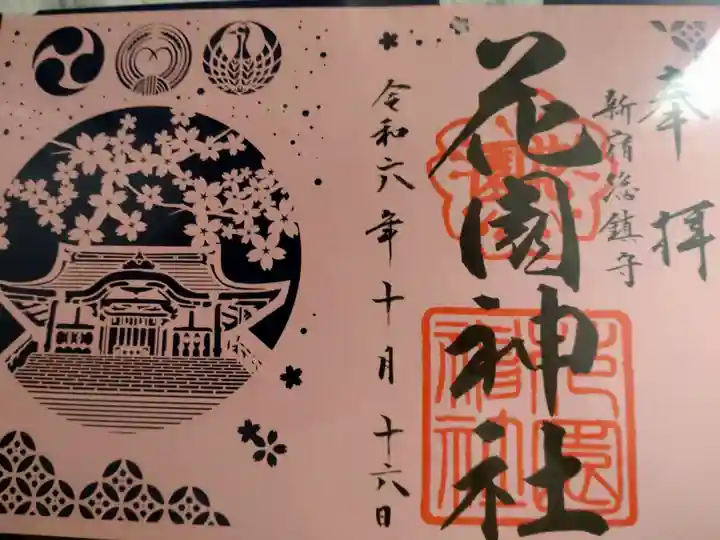 奉拝
新宿総鎮守
花園神社
令和六年十月十六日
花園
神社